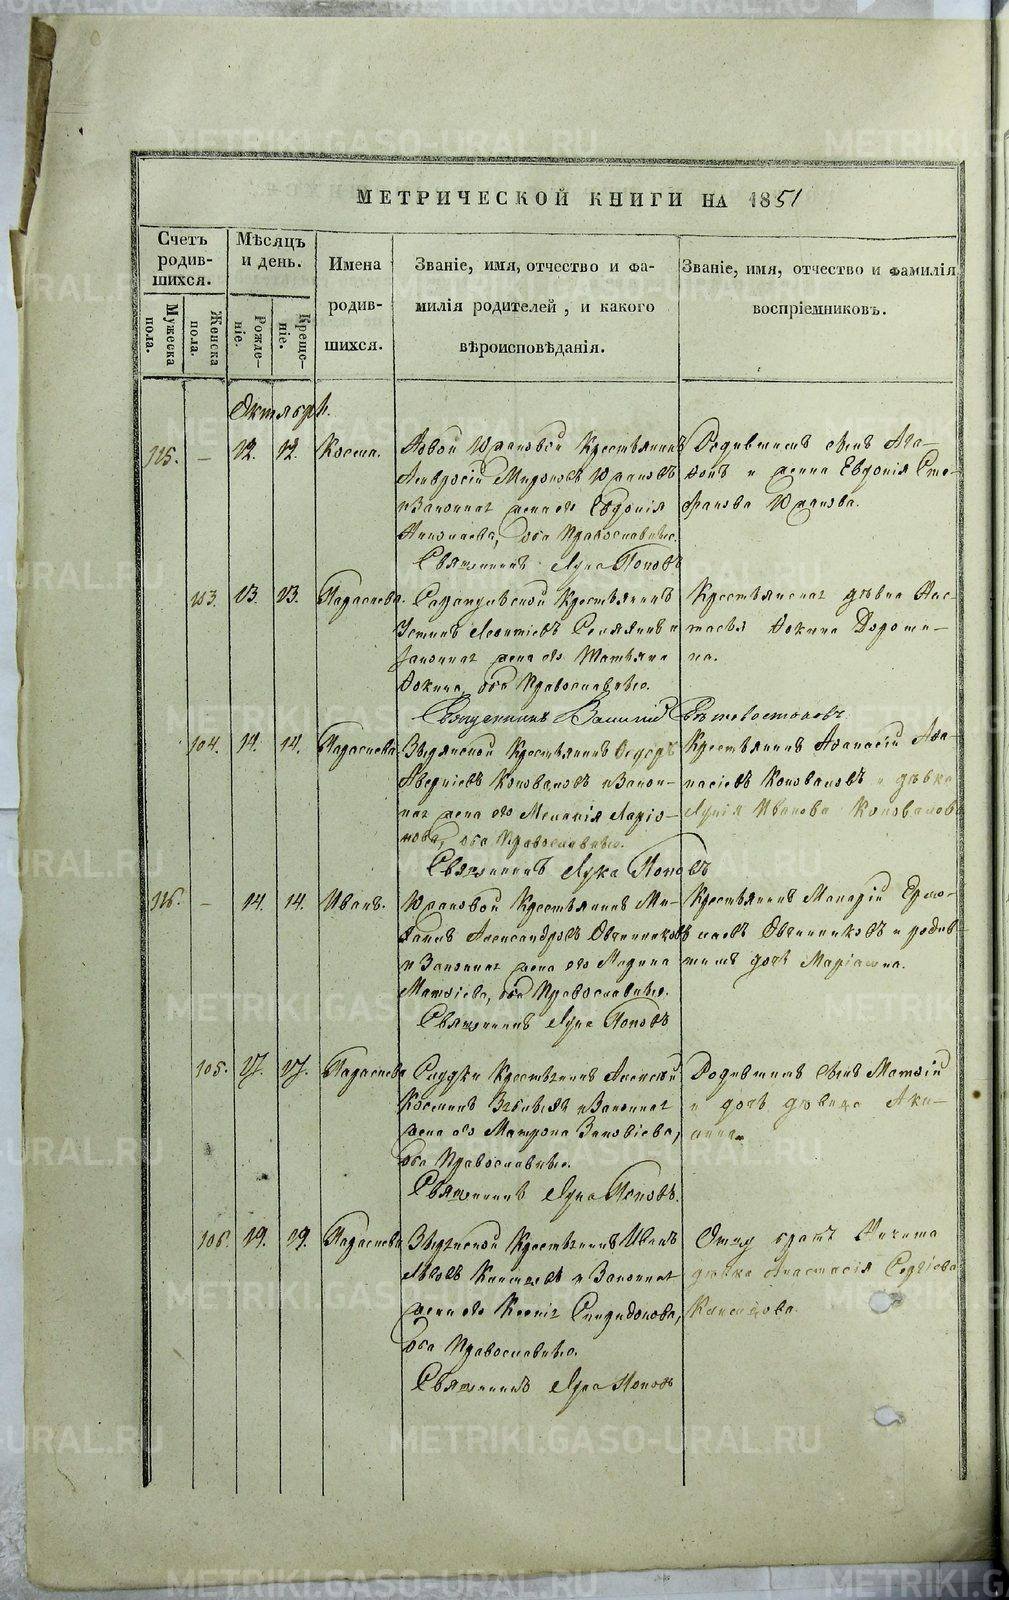 МЕТРИЧЕСКОЙ КНИГИ НА 1851
Счетъ родив-шихся.
Мужеска пола.
Женска пола.
Мѣсяцъ и день.
Рожде-ніе.
Креще-ніе.
Имена родив-шихся.
Званіе, имя, отчество и фа-
милія родителей, и какого
вѣроисповѣданія.
Званіе, имя, отчество и фамилія
воспріемниковъ.
Октябрь.
115. — 12. 12. Косма.
Крестьянинъ
Амвросій Мироновъ
и законная жена его Евдокія
Николаева, оба Православные.
Священникъ Лука Поповъ
Родившимъ сынъ Ага-
фонъ и жена Евдокія Сте-
фанова
103. 13. 13. Параскева.
Крестьянинъ
Устинъ Леонтіевъ и
законная жена его Татьяна
Фокина, оба Православные.
Священникъ Василій
Крестьянская дѣвка Нас-
тасья Фокина
104. 14. 14. Параскева
Крестьянинъ Ѳедоръ
Коноваловъ и закон-
ная жена его Меланія Ларіо-
нова, оба Православные.
Священникъ Лука Поповъ
Крестьянинъ Афанасій Афа-
насіевъ Коноваловъ и дѣвка
Иванова Коновалова
116. — 14. 14. Иванъ.
Крестьянинъ
Александровъ Овчинниковъ
и законная жена его
Матѳіева, оба Православные.
Священникъ Лука Поповъ
Крестьянинъ Макарій Ермо-
лаевъ Овчинниковъ и родив-
шимъ дочь Маріамна.
105. 17. 17. Параскева
Крестьянинъ Алексѣй
Косминъ и законная
жена его Матрона Зиновіева,
оба Православные.
Священникъ Лука Поповъ.
Родившимъ сынъ Матѳій
и дочь дѣвица Аки-
лина.
106. 19. 19. Параскева
Крестьянинъ Иванъ
Львовъ и законная
жена его Ксенія Спиридонова,
оба Православные.
Священникъ Лука Поповъ
Отцу братъ Никита
дѣвка Анастасія
METRIKI.GASO-URAL.RU